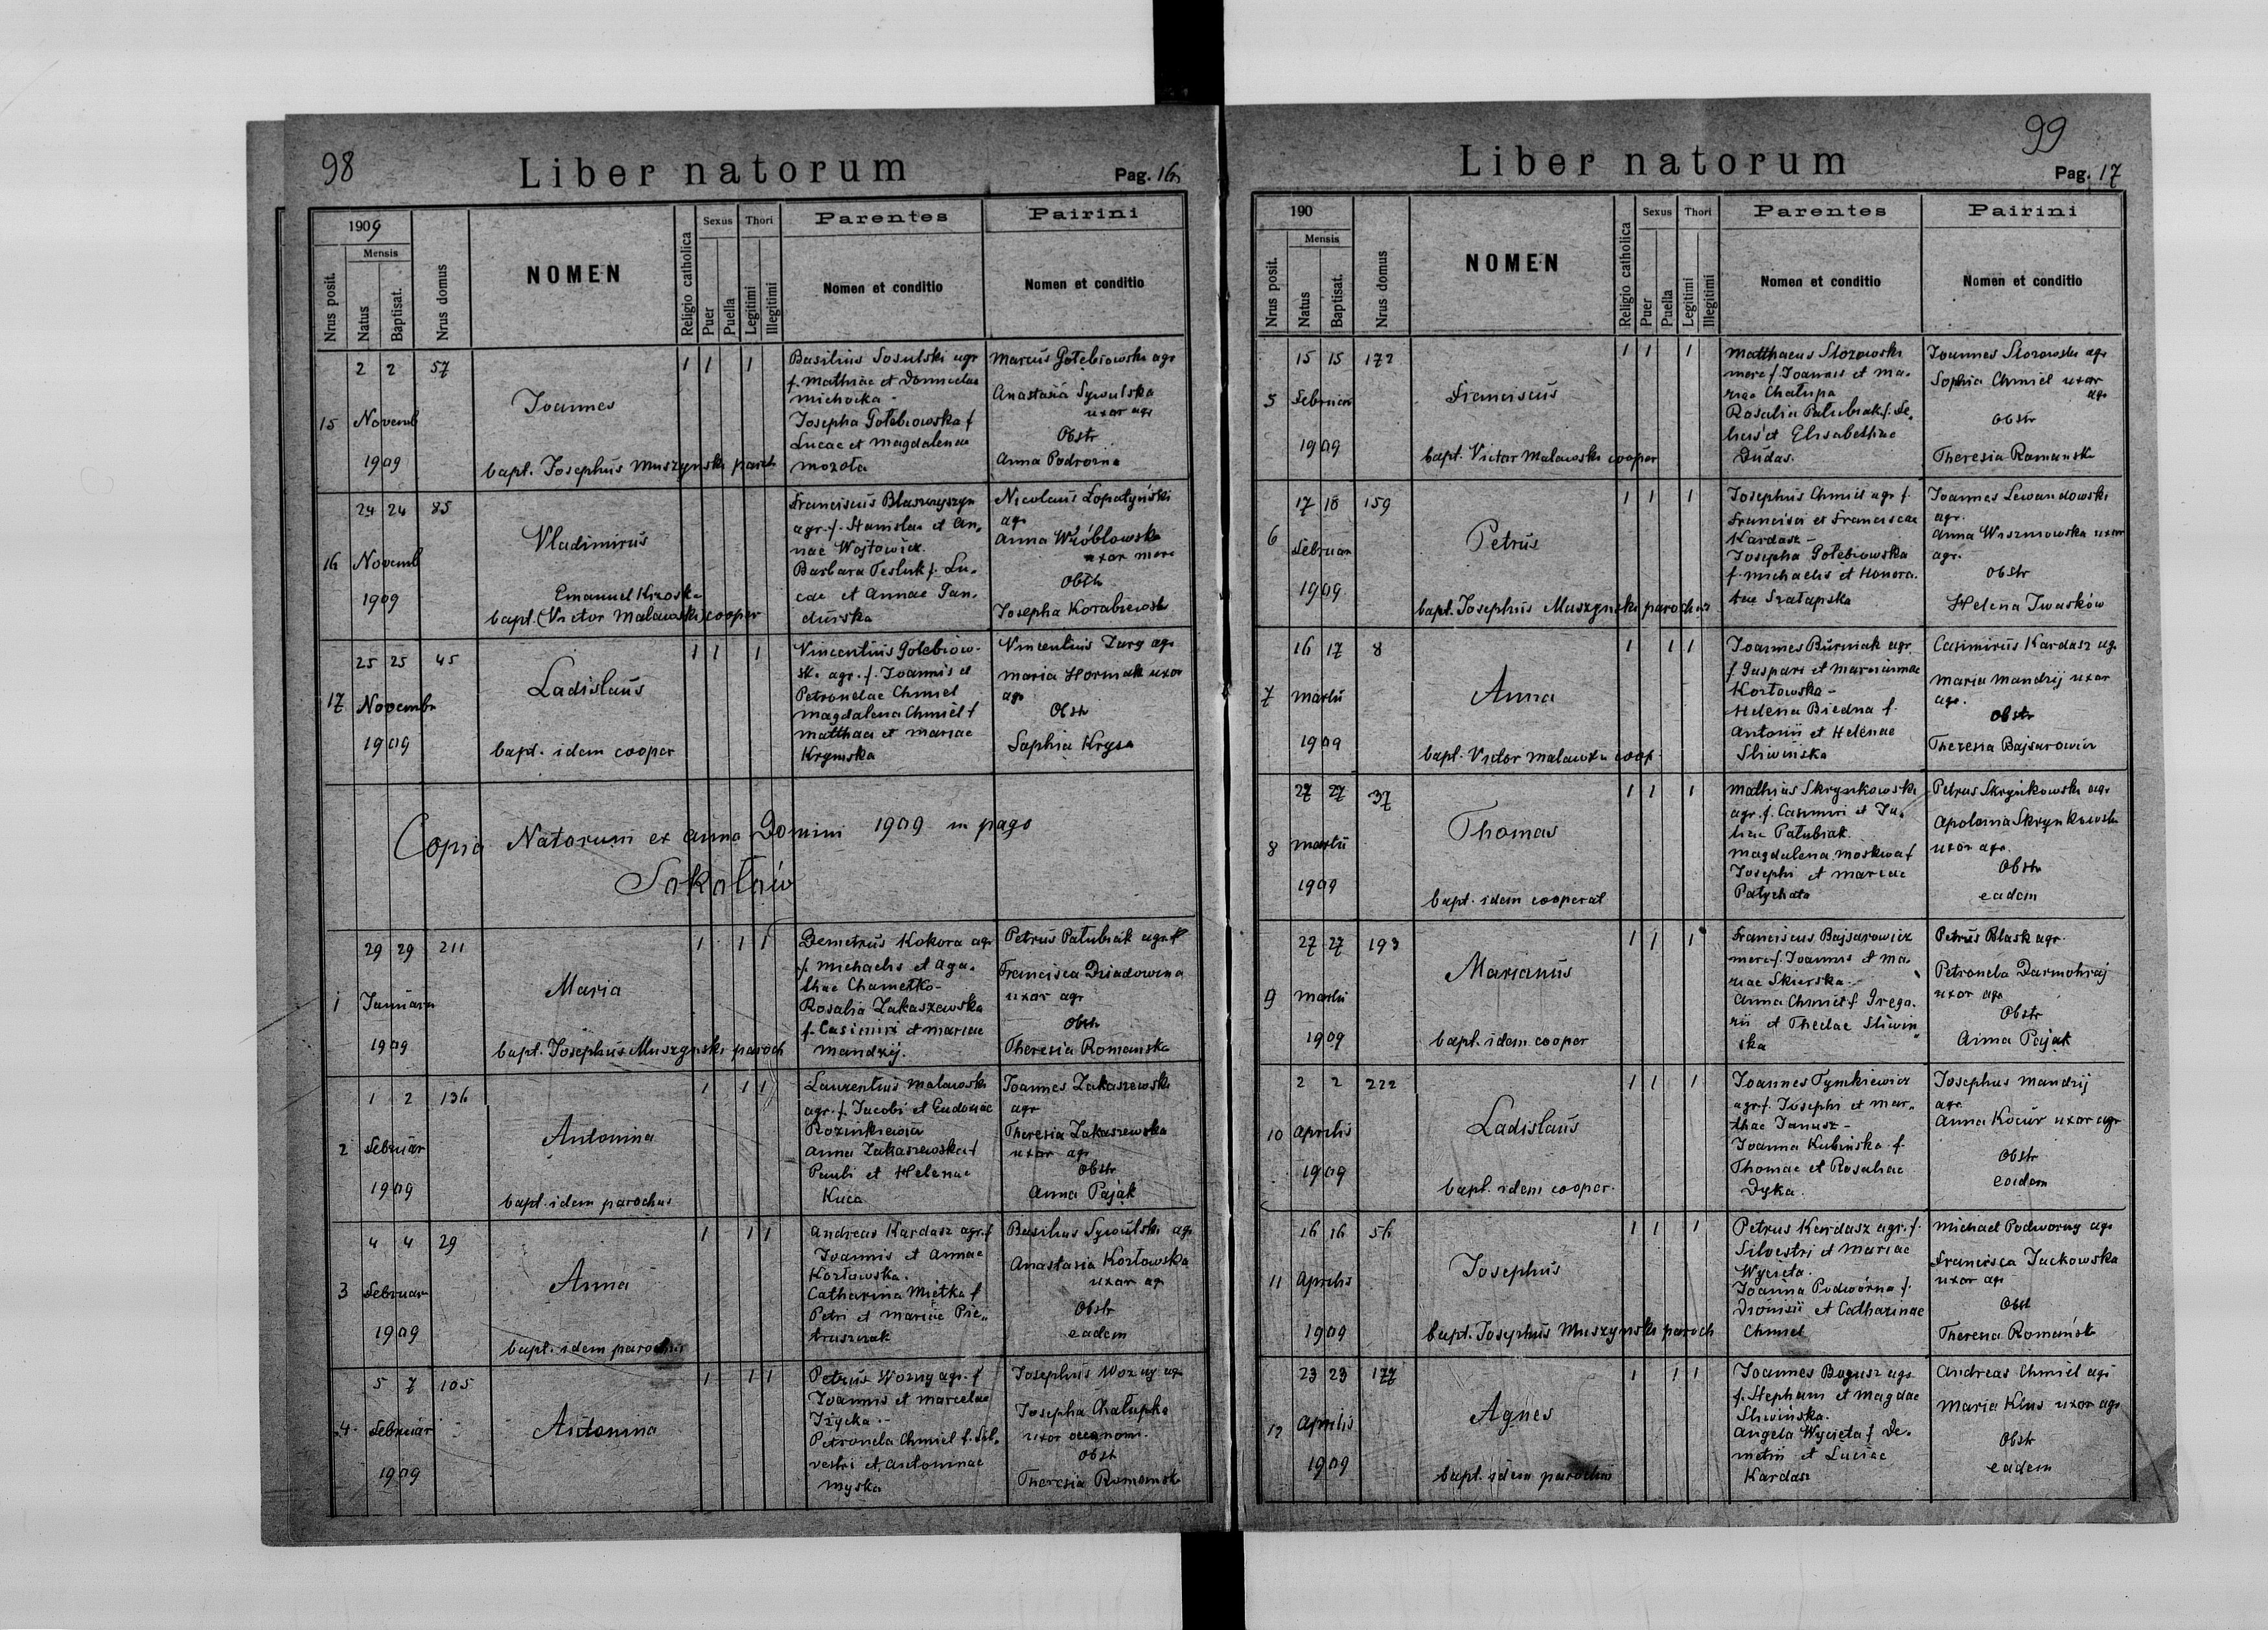 98
Liber natorum
Pag. 16
1909
Mensis
Nrus posit.
Natus
Baptisat.
Nrus domus
NOMEN
Religio catholica
Sexus
Puer
Puella
Thori
Legitimi
Illegitimi
Parentes
Nomen et conditio
Pairini
Nomen et conditio
15
2 2 57
Novemb
1909
Joannes
bapt. Josephus Muszynski paroch
1 1 1
Basilius Sosulski agr
f. Mathiae et
Michocka -
Josepha Gołębiowska f
Lucae et Magdalenae
Mozoła
Marcus Gołębiowski agr
Anastasia Sywulska
uxor agr
Obstr
Anna Podrorna
16
24 24 85
Novemb
1909
Vladimirus
Emanuel
bapt. (Victor Malawski) cooper
Franciscus Blaszczyszyn
agr. f. Stanislai et An„
nae Wojtowicz.
Barbara Tesluk f. Lu„
cae et Annae Pan„
durska
Nicolaus Łopatyński
agr
Anna Wróblowska
uxor merc
Obstr
Josepha
17
25 25 45
Novembr
1909
Ladislaus
bapt. idem cooper
1 1 1
Vincentius Golebiow-
ski agr. f. Joannis et
Petronelae Chmiel
Magdalena Chmiel f
Matthaei et Mariae
Krymska
Vincentius Zarg agr
Maria Hormak uxor
agr
Obstr
Sophia Krysa
Copia Natorum ex anno Domini 1909 in pago
Sokołów
1
29 29 211
Januarii
1909
Maria
bapt. Josephus Muszynski paroch
1 1 1
Demetrius Kokora agr
f. Michaelis et Aga„
thae Chametko-
Rosalia Zakaszewska
f. Casimiri et Mariae
Mandzij.
Petrus Pałubiak agr. f
Francisca Dziadowna
uxor agr
Obstr
Theresia Romanska
2
1 2 136
Februar
1909
Antonina
bapt. idem parochus
1 1 1
Laurentius Malawski
agr. f. Jacobi et Eudoxiae
Rozinkiewicz
Anna Zakaszewska f
Pauli et Helenae
Kuca
Joannes Zakaszewski
agr
Theresia Zakaszewska
uxor agr
Obstr
Anna Pająk
3
4 4 29
Februar
1909
Anna
bapt. idem parochus
1 1 1
Andreas Kardasz agr. f
Joannis et Annae
Kozłowska.
Catharina Miętka f
Petri et Mariae Pie„
truszczak
Basilius Sywulski agr
Anastasia Kozłowska
uxor agr
Obstr
eadem
4
5 7 105
Februar
1909
Antonina
1 1 1
Petrus Wozny agr. f
Joannis et Marcelae
Iżycka.-
Petronela Chmiel f. Sil„
vestri et Antoninae
Myska
Josephus Wozny agr
Josepha Chałupka
uxor oeconomi.
Obstr
Theresia Romansk
99
Liber natorum
Pag. 17
190
Mensis
Nrus posit.
Natus
Baptisat.
Nrus domus
NOMEN
Religio catholica
Sexus
Puer
Puella
Thori
Legitimi
Illegitimi
Parentes
Nomen et conditio
Pairini
Nomen et conditio
5
15 15 172
Februar
1909
Franciscus
bapt. Victor Malawski cooper
1 1 1
Matthaeus Slozowski
merc f. Joannis et Ma„
riae Chałupa
Rosalia Pałubiak f. Fe„
licis et Elisabethae
Dudas.
Joannes Slozowski agr
Sophia Chmiel uxor
agr
Obstr
Theresia Romansk
6
17 18 159
Februar
1909
Petrus
bapt. Josephus Muszynski parochus
1 1 1
Josephus Chmiel agr f.
Francisci et Franciscae
Kardasz -
Josepha Gołębiowska
f. Michaelis et Honora„
tae Szałapska
Joannes Lewandowski
agr.
Anna Wiszniowska uxor
agr.
Obstr
Helena Iwasków
7
16 17 8
Martii
1909
Anna
bapt. Victor Malawski coop.
1 1 1
Joannes Burniak agr
f. Gaspari et Mariannae
Kozłowska -
Helena Biedna f.
Antonii et Helenae
Sliwińska
Casimirus Kardasz agr
Maria Mandzij uxor
agr.
Obstr
Theresia Bajsarowicz
8
27 27 37
Martii
1909
Thomas
bapt. idem cooperat
1 1 1
Mathias Skrynkowski
agr. f. Casimiri et Ju„
liae Pałubiak.
Magdalena Moskwa f
Josephi et Mariae
Patychata
Petrus Skrynkowski agr
Apolonia Skrynkowska
uxor agr.
Obstr
eadem
9
27 27 193
Martii
1909
Marianus
bapt. idem cooper
1 1 1
Franciscus Bajsarowicz
merc f. Joannis et Ma„
riae Skierska.-
Anna Chmiel f Grego„
rii et Theclae Sliwin„
ska
Petrus Blask agr.
Petronela Darmohraj
uxor agr
Obstr
Anna Pająk
10
2 2 222
Aprilis
1909
Ladislaus
bapt. idem cooper.
1 1 1
Joannes Tymkiewicz
agr f. Josephi et Mar„
thae Janusz -
Joanna Kubinska f.
Thomae et Rosaliae
Dyka.
Josephus Mandzij
agr
Anna Kocur uxor agr
Obstr
eadem
11
16 16 56
Aprilis
1909
Josephus
bapt. Josephus Muszynski paroch
1 1 1
Petrus Kardasz agr. f.
Silvestri et Mariae
Wycieta.
Joanna Podworna f.
Dionisii et Catharinae
Chmiel
Michael Podworny agr
Francisca Juckowska
uxor agr
Obst
Theresia Romańsk
12
23 23 177
Aprilis
1909
Agnes
bapt. idem parochus
1 1 1
Joannes Bogusz agr
f. Stephani et Magdae
Sliwińska.
Angela Wycięta f De„
metrii et Luciae
Kardasz
Andreas Chmiel agr
Maria Klus uxor agr
Obstr
eadem